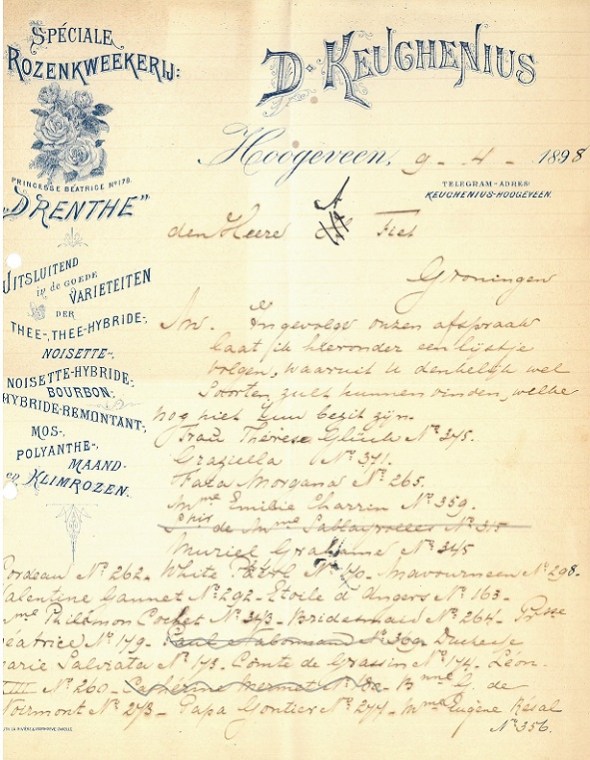 SPÉCIALE
ROZENKWEEKERIJ:
PRINCESSE BÉATRICE Nº 179.
„DRENTHE"
UITSLUITEND
in de GOEDE
VARIETEITEN
DER
THEE-, THEE-HYBRIDE-,
NOISETTE-,
NOISETTE-HYBRIDE-,
BOURBON-,
HYBRIDE-REMONTANT-,
MOS-,
POLYANTHE-,
MAAND-
en KLIMROZEN.
D. KEUCHENIUS
Hoogeveen, 9 - 4 - 1898
TELEGRAM-ADRES:
KEUCHENIUS-HOOGEVEEN.
den Heere A Fiet
Groningen
M. Ingevolge onzen afspraak
laat ik hieronder een lijstje
volgen, waaruit u denkelijk wel
soorten zult kunnen vinden, welke
nog niet Uw bezit zijn.
Frau Thérèse Glück Nº 375.
Graziella Nº 371.
Fata Morgana Nº 265.
Mme Emilie Charrin Nº 359.
de Mme Sablayrolles Nº 315
Muriel Grahame Nº 345
Bordeau Nº 262 - White Pearl Nº 170 - Mavourneen Nº 298 -
Valentine Gaunet Nº 292 - Etoile d'Angers Nº 163 -
Mme Philémon Cochet Nº 343 - Bridesmaid Nº 264 - Prsse
Béatrice Nº 179 - Paul Nabonnand Nº 360 Duchesse
Marie Salviata Nº 173 - Comte de Grassin Nº 174. Léon
XIII Nº 260 - Catherine Mermet Nº - Bnne G. de
Noirmont Nº 273 - Papa Gontier Nº 277 - Mme Eugène Résal
Nº 356.